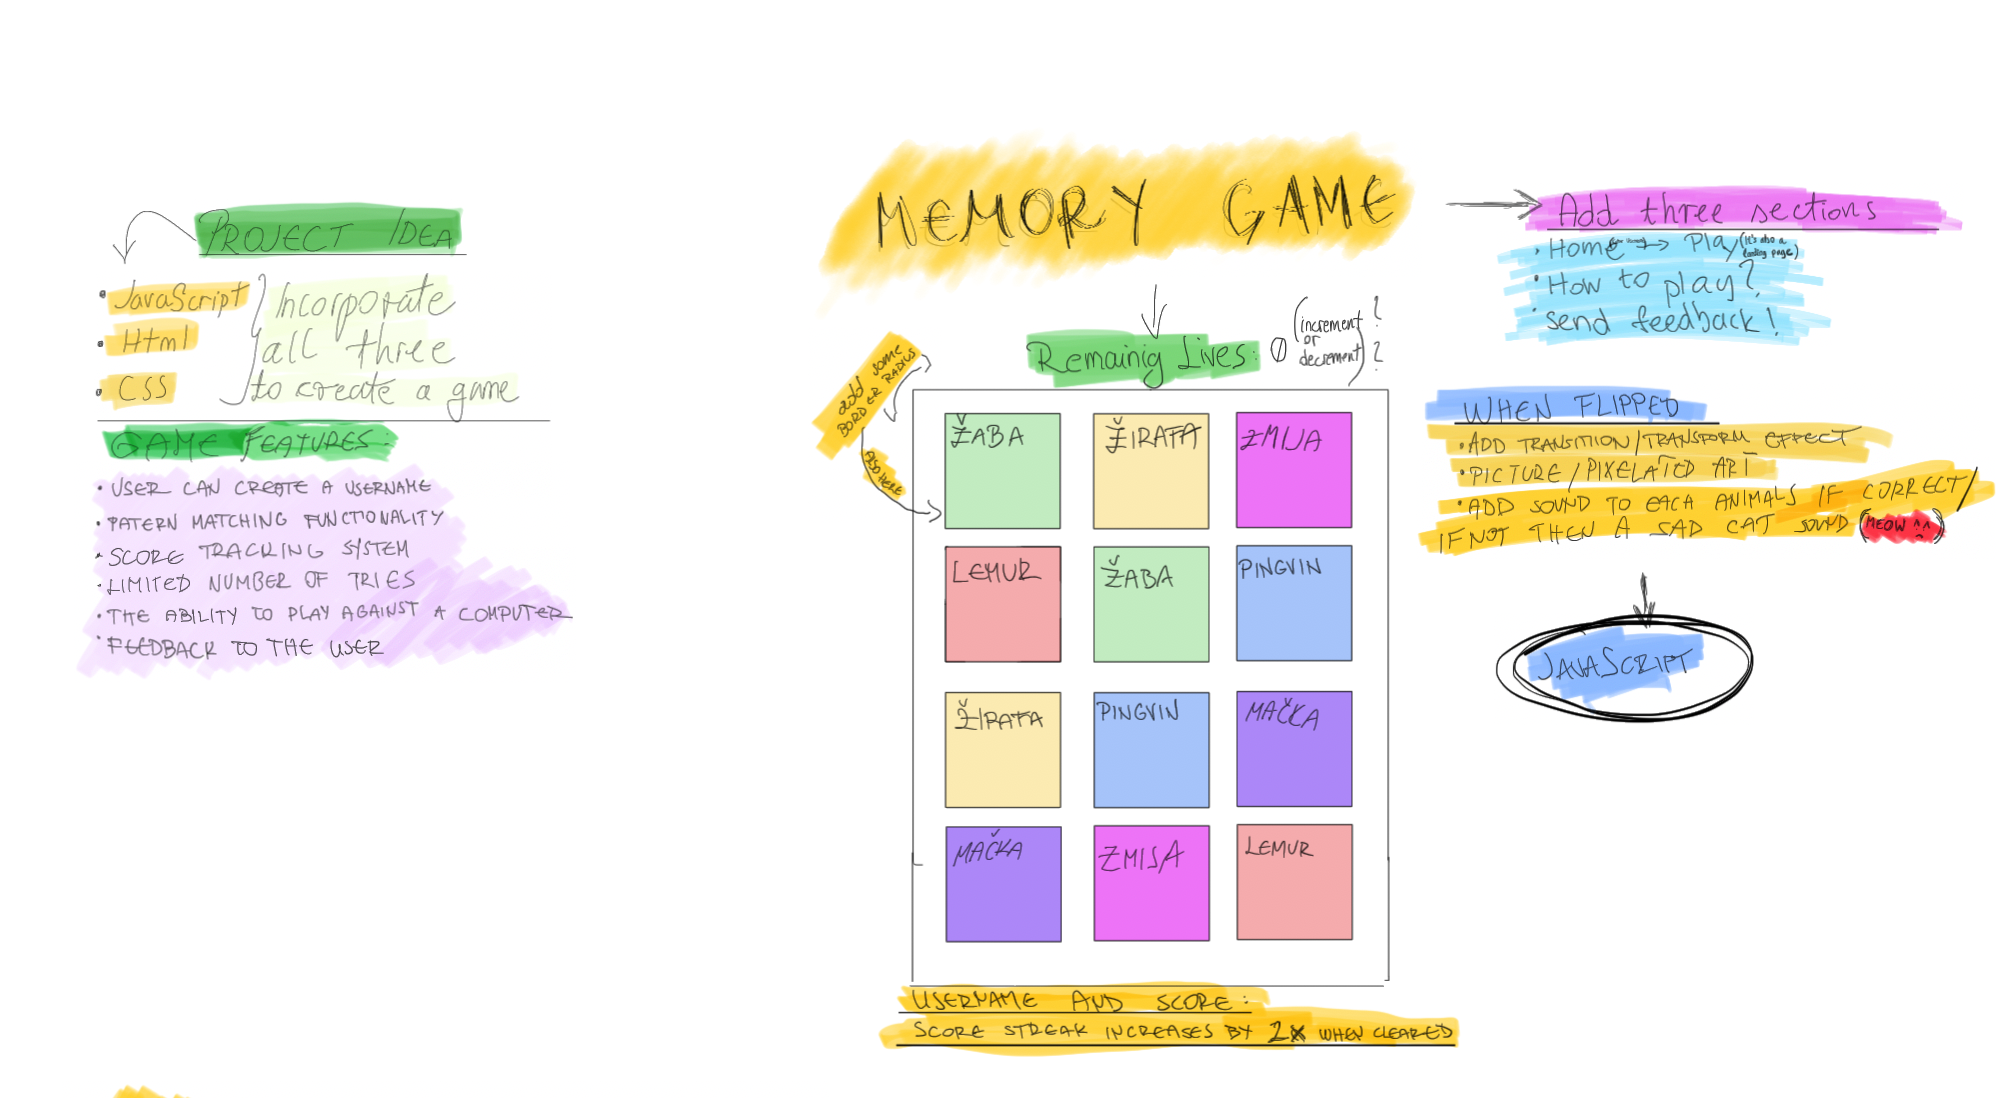 PROJECT IDEA
• JavaScript
• Html
• CSS
Incorporate
all three
to create a game
GAME FEATURES:
• USER CAN CREATE A USERNAME
• PATERN MATCHING FUNCTIONALITY
• SCORE TRACKING SYSTEM
• LIMITED NUMBER OF TRIES
• THE ABILITY TO PLAY AGAINST A COMPUTER
• FEEDBACK TO THE USER
MEMORY GAME
Remainig Lives: 0
(increment ?
or
decrement) ?
add some
BORDER RADIUS
ALSO HERE
ŽABA
ŽIRAFA
ZMIJA
LEMUR
ŽABA
PINGVIN
ŽIRAFA
PINGVIN
MAČKA
MAČKA
ZMIJA
LEMUR
USERNAME AND SCORE:
SCORE STREAK INCREASES BY 2X WHEN CLEARED
Add three sections
• Home → Play (it's also a
landing page)
• How to play?
• Send feedback!
WHEN FLIPPED
• ADD TRANSITION/TRANSFORM EFFECT
• PICTURE/PIXELATED ART
• ADD SOUND TO EACH ANIMALS IF CORRECT/
IF NOT THEN A SAD CAT SOUND (MEOW ^^)
JAVASCRIPT